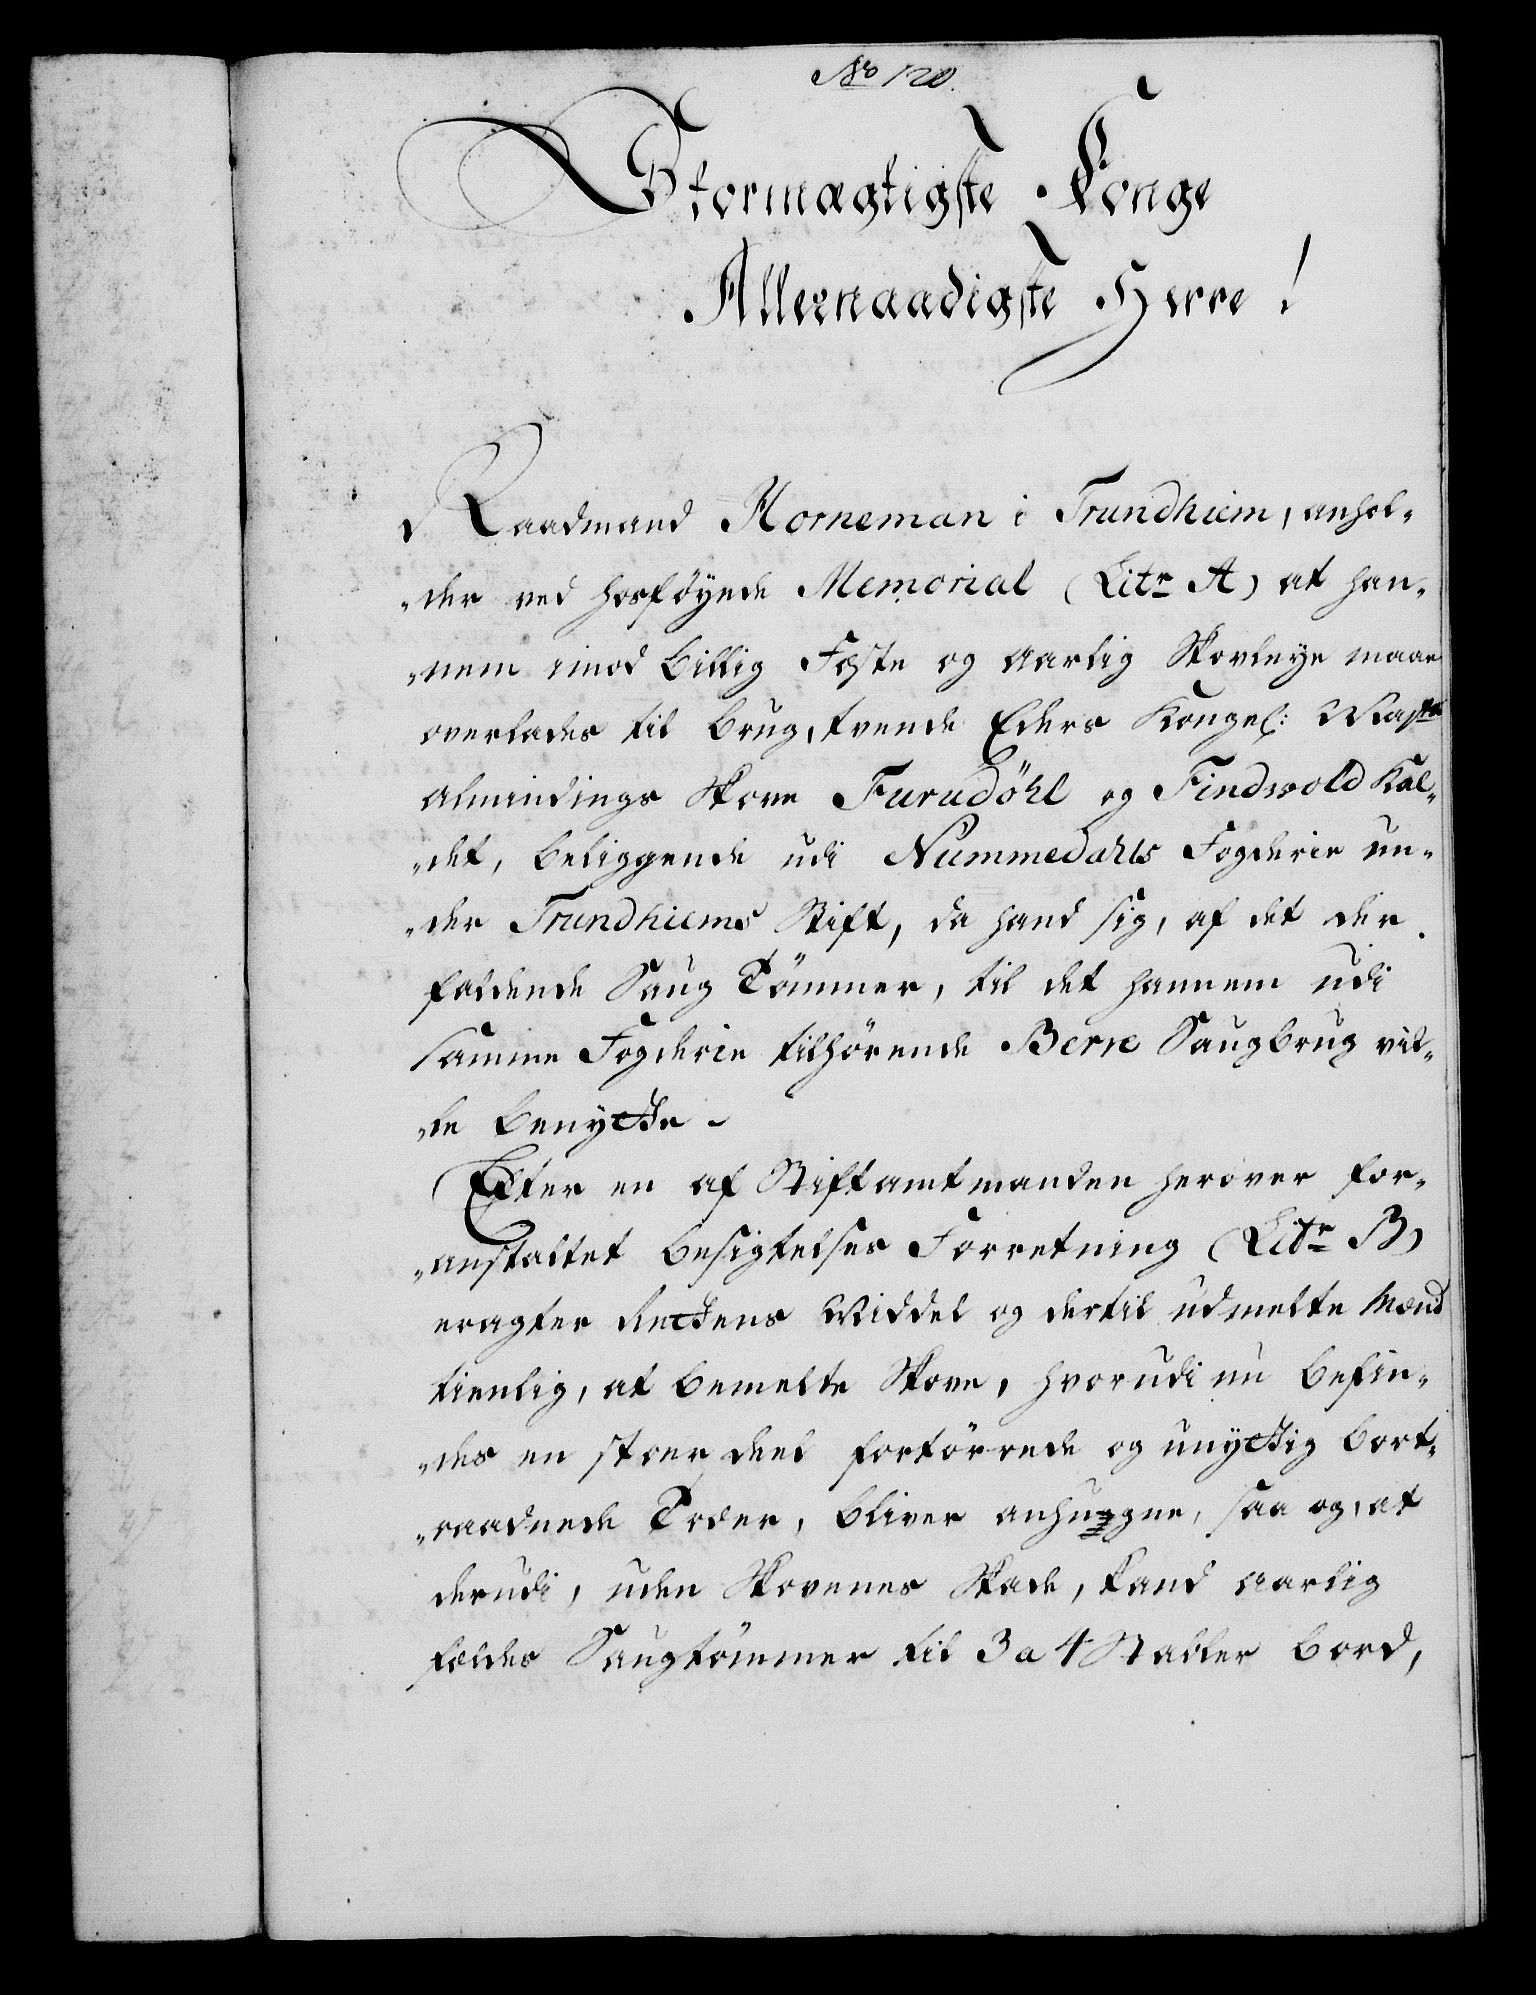 No 120.
Stormægtigste Konge
Allernaadigste Herre!
Raadmand Horneman i Trundhiem, anhol-
-der ved hosföyede Memorial (Litr A) at han-
-nem imod billig Fæste og aarlig Skovleye maae
overlades til brug, tvende Eders Kongel: Mayts
Almindings Skove Furudöhl og Findvold Kal-
-det, beliggende udi Nummedahls Fogderie un-
-der Trundhiems Stift, da hand sig, af det der
faldende Saug Tömmer, til det hannem udi
samme Fogderie tilhörende Berre Saugbrug vil-
-le benytte.
Efter en af Stiftamtmanden herover for-
-anstaltet besigtelses Forretning (Litr B)
eragter Rettens Middel og dertil udmelte Mænd
tienlig, at bemelte Skove, hvorudi nu befin-
-des en stoer deel fortörrede og unyttig bort-
-raadnede Træer, bliver anhuggne, saa og, at
derudi, uden Skovenes Skade, kand aarlig
fældes Saugtömmer til 3 a 4 Stabler bord,